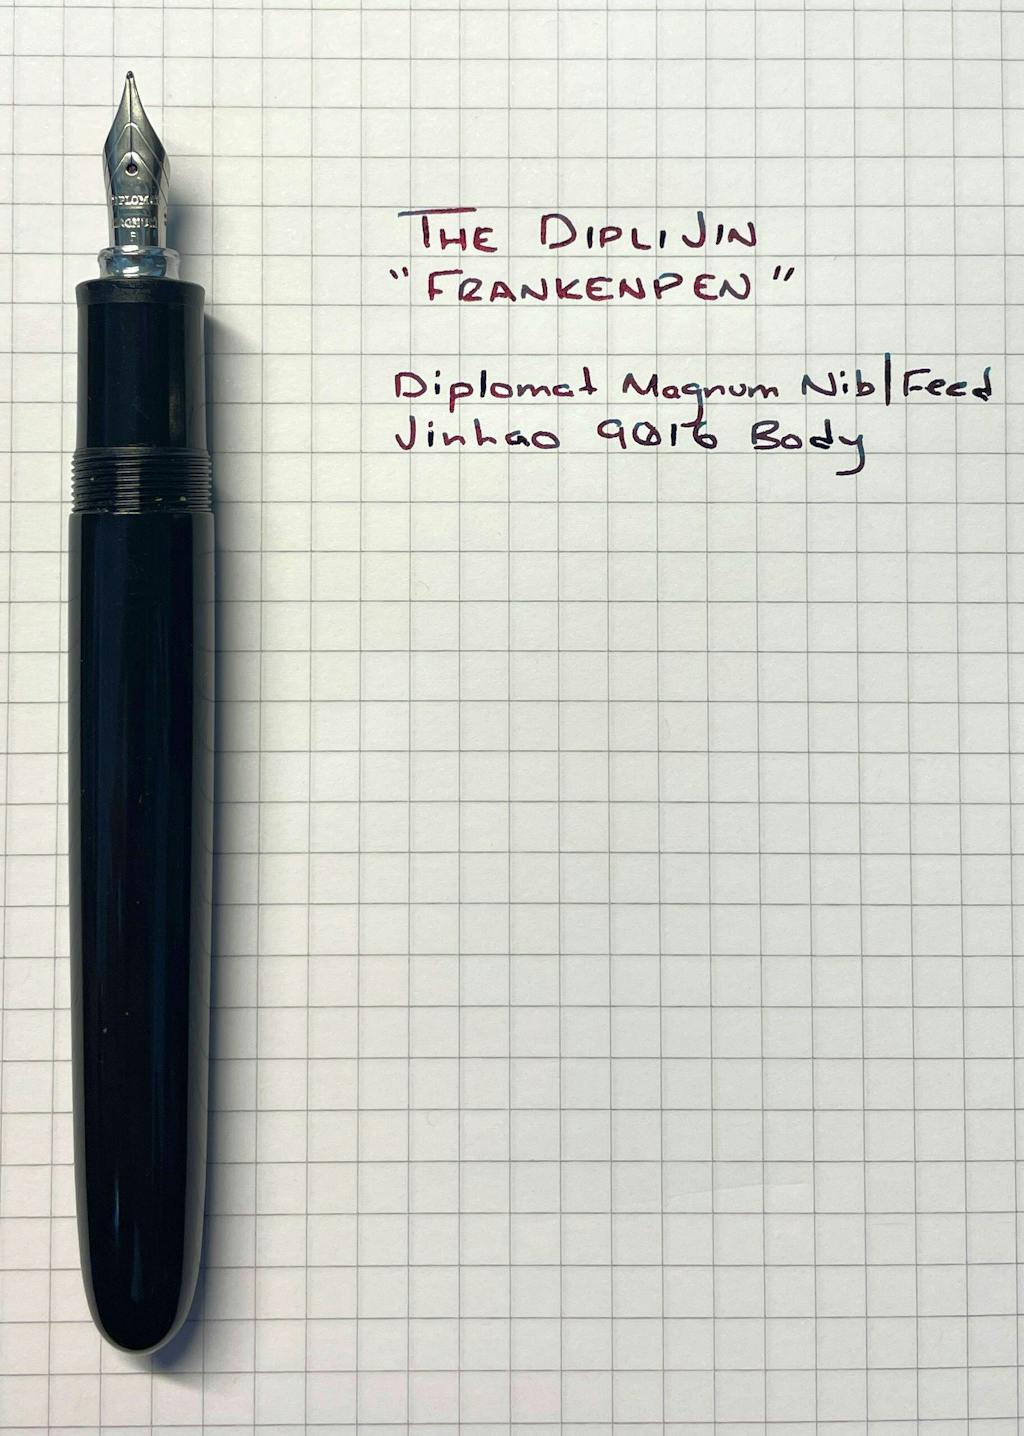 DIPLOMAT
MAGNUM
F
THE DIPLIJIN
"FRANKENPEN"
Diplomat Magnum Nib|Feed
Jinhao 9016 Body